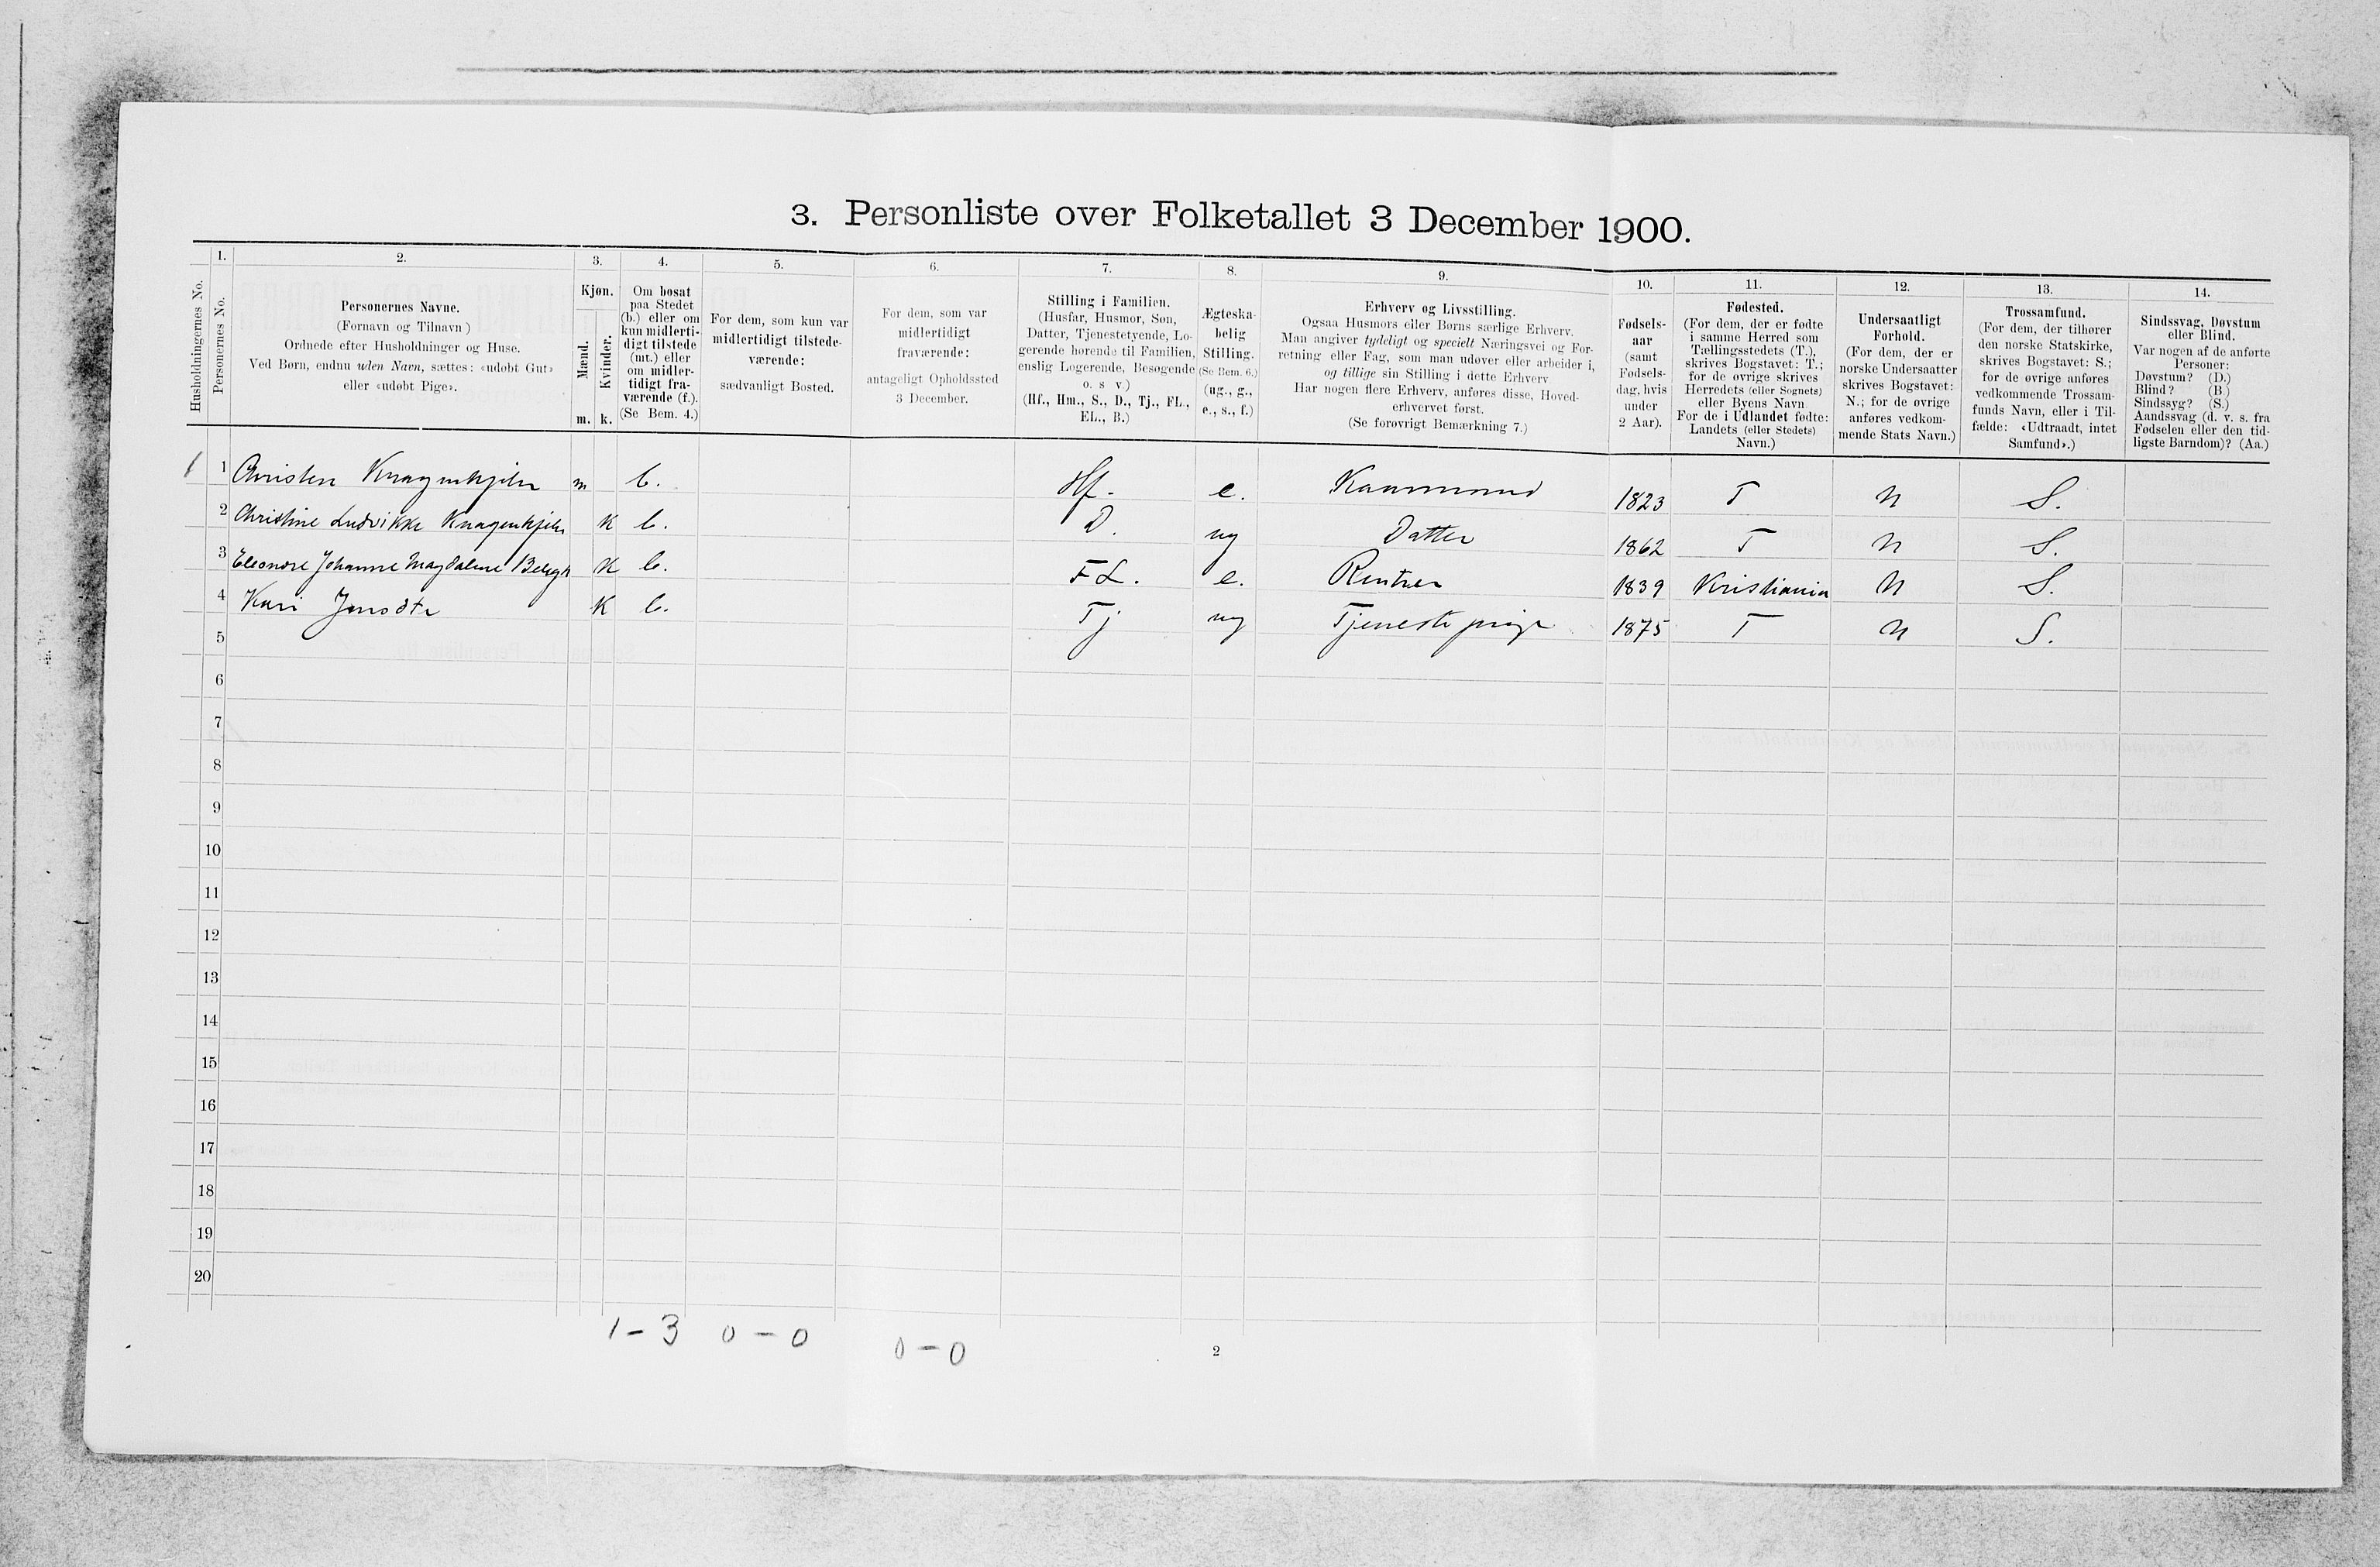 3. Personliste over Folketallet 3 December 1900.
1. 2. 3. 4. 5. 6. 7. 8. 9. 10. 11. 12. 13. 14.
Husholdningernes No.
Personernes No.
Personernes Navne.
(Fornavn og Tilnavn)
Ordnede efter Husholdninger og Huse.
Ved Børn, endnu uden Navn, sættes: «udøbt Gut»
eller «udøbt Pige».
Kjøn.
Mænd.
Kvinder.
m. k.
Om bosat
paa Stedet
(b.) eller om
kun midlerti-
digt tilstede
(mt.) eller
om midler-
tidigt fra-
værende (f.).
(Se Bem. 4.)
For dem, som kun var
midlertidigt tilstede-
værende:
sædvanligt Bosted.
For dem, som var
midlertidigt
fraværende:
antageligt Opholdssted
3 December.
Stilling i Familien.
(Husfar, Husmor, Søn,
Datter, Tjenestetyende, Lo-
gerende hørende til Familien,
enslig Logerende, Besøgende
o. s v.)
(Hf., Hm., S., D., Tj., FL.,
EL., B.)
Ægteska-
belig
Stilling.
(Se Bem. 6.)
(ug., g.,
e., s., f.)
Erhverv og Livsstilling.
Ogsaa Husmors eller Børns særlige Erhverv.
Man angiver tydeligt og specielt Næringsvei og For-
retning eller Fag, som man udøver eller arbeider i,
og tillige sin Stilling i dette Erhverv
Har nogen flere Erhverv, anføres disse, Hoved-
erhvervet først.
(Se forøvrigt Bemærkning 7.)
Fødsels-
aar
(samt
Fødsels-
dag, hvis
under
2 Aar).
Fødested.
(For dem, der er fødte
i samme Herred som
Tællingsstedets (T.),
skrives Bogstavet: T.;
for de øvrige skrives
Herredets (eller Sognets)
eller Byens Navn
For de i Udlandet fødte:
Landets (eller Stedets)
Navn.)
Undersaatligt
Forhold.
(For dem, der er
norske Undersaatter
skrives Bogstavet:
N.; for de øvrige
anføres vedkom-
mende Stats Navn.)
Trossamfund.
(For dem, der tilhører
den norske Statskirke,
skrives Bogstavet: S.;
for de øvrige anføres
vedkommende Trossam-
funds Navn, eller i Til-
fælde: «Udtraadt, intet
Samfund».)
Sindssvag, Døvstum
eller Blind.
Var nogen af de anførte
Personer:
Døvstum? (D.)
Blind? (B.)
Sindssyg? (S.)
Aandssvag (d. v. s. fra
Fødselen eller den tid-
ligste Barndom)? (Aa.)
1 1 Christen m b. Hf. e. 1823 T N S.
2 Christine Ludvikke k b. D. ug Datter 1862 T N S.
3 Eleonore Johanne Magdalene k b. FL. e. Rentner 1839 Kristiania N S.
4 Kari k b. Tj ug Tjenestepige 1875 T N S.
5
6
7
8
9
10
11
12
13
14
15
16
17
18
19
20
1 - 3 0 - 0 0 - 0
2